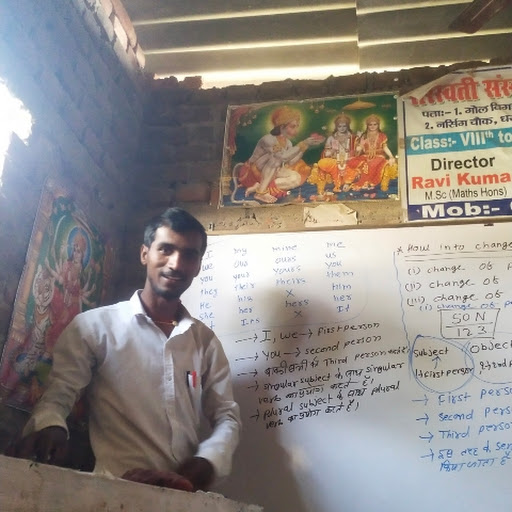 सरस्वती संस
पता:- 1. गोल बिग
2. नर्सिंग चौक, ध
Class:- VIIIth to
Director
Ravi Kuma
M.Sc (Maths Hons)
Mob:-
I my mine me
we our ours us
you your yours you
they their theirs them
He his X him
she her hers her
It Its X It
→ I, we → first person
→ you → second person
→ बाकी सभी को Third person
→ singular subject के साथ singular
verb का प्रयोग करते हैं।
→ plural subject के साथ plural
verb का प्रयोग करते हैं।
* How into change
(i) change of p
(ii) change of
(iii) change of
(i) change of p
SON
123
subject
1→first person
Object
2→2nd p
→ First perso
→ second pers
→ Third perso
→ इस तरह के sen
किया जाता है